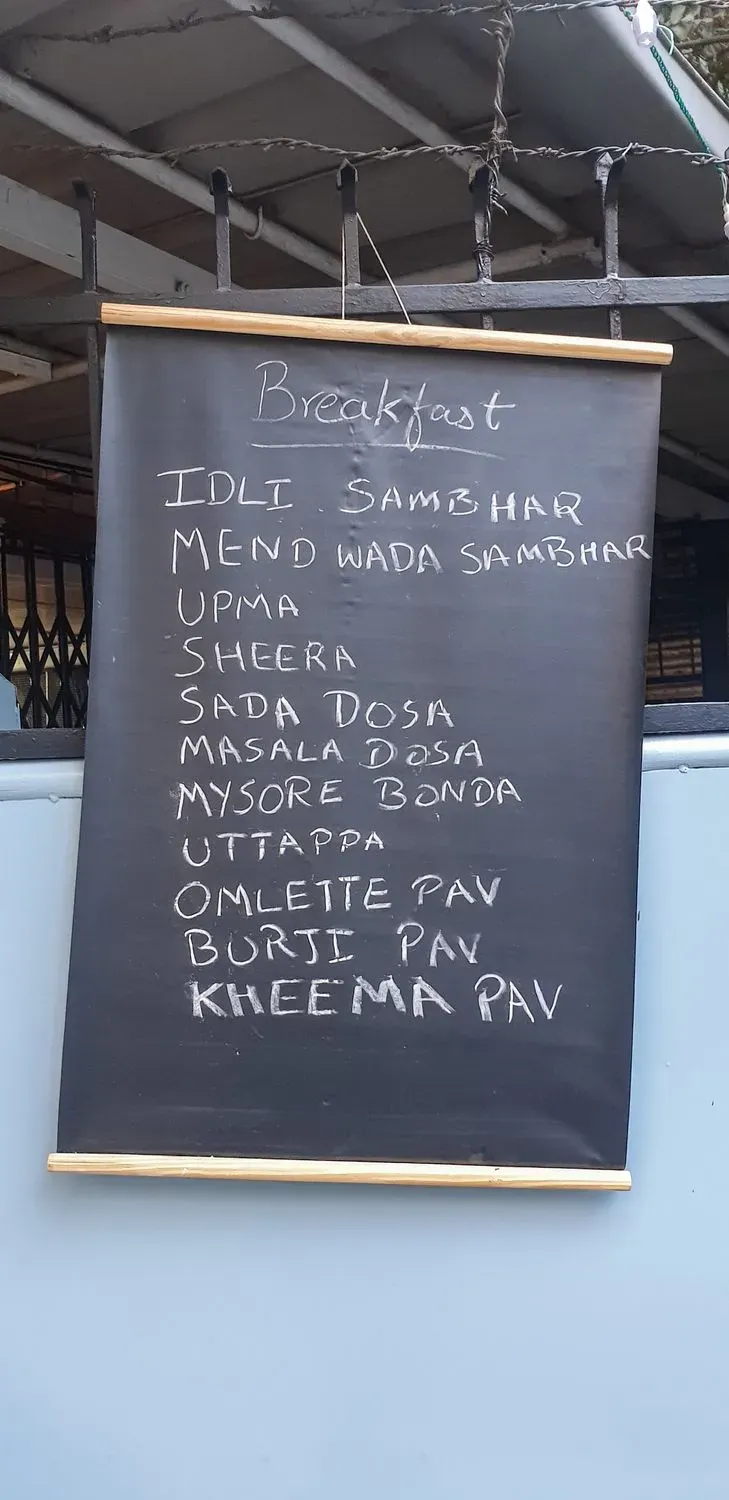 Breakfast
IDLI SAMBHAR
MEND WADA SAMBHAR
UPMA
SHEERA
SADA DOSA
MASALA DOSA
MYSORE BONDA
UTTAPPA
OMLETTE PAV
BURJI PAV
KHEEMA PAV